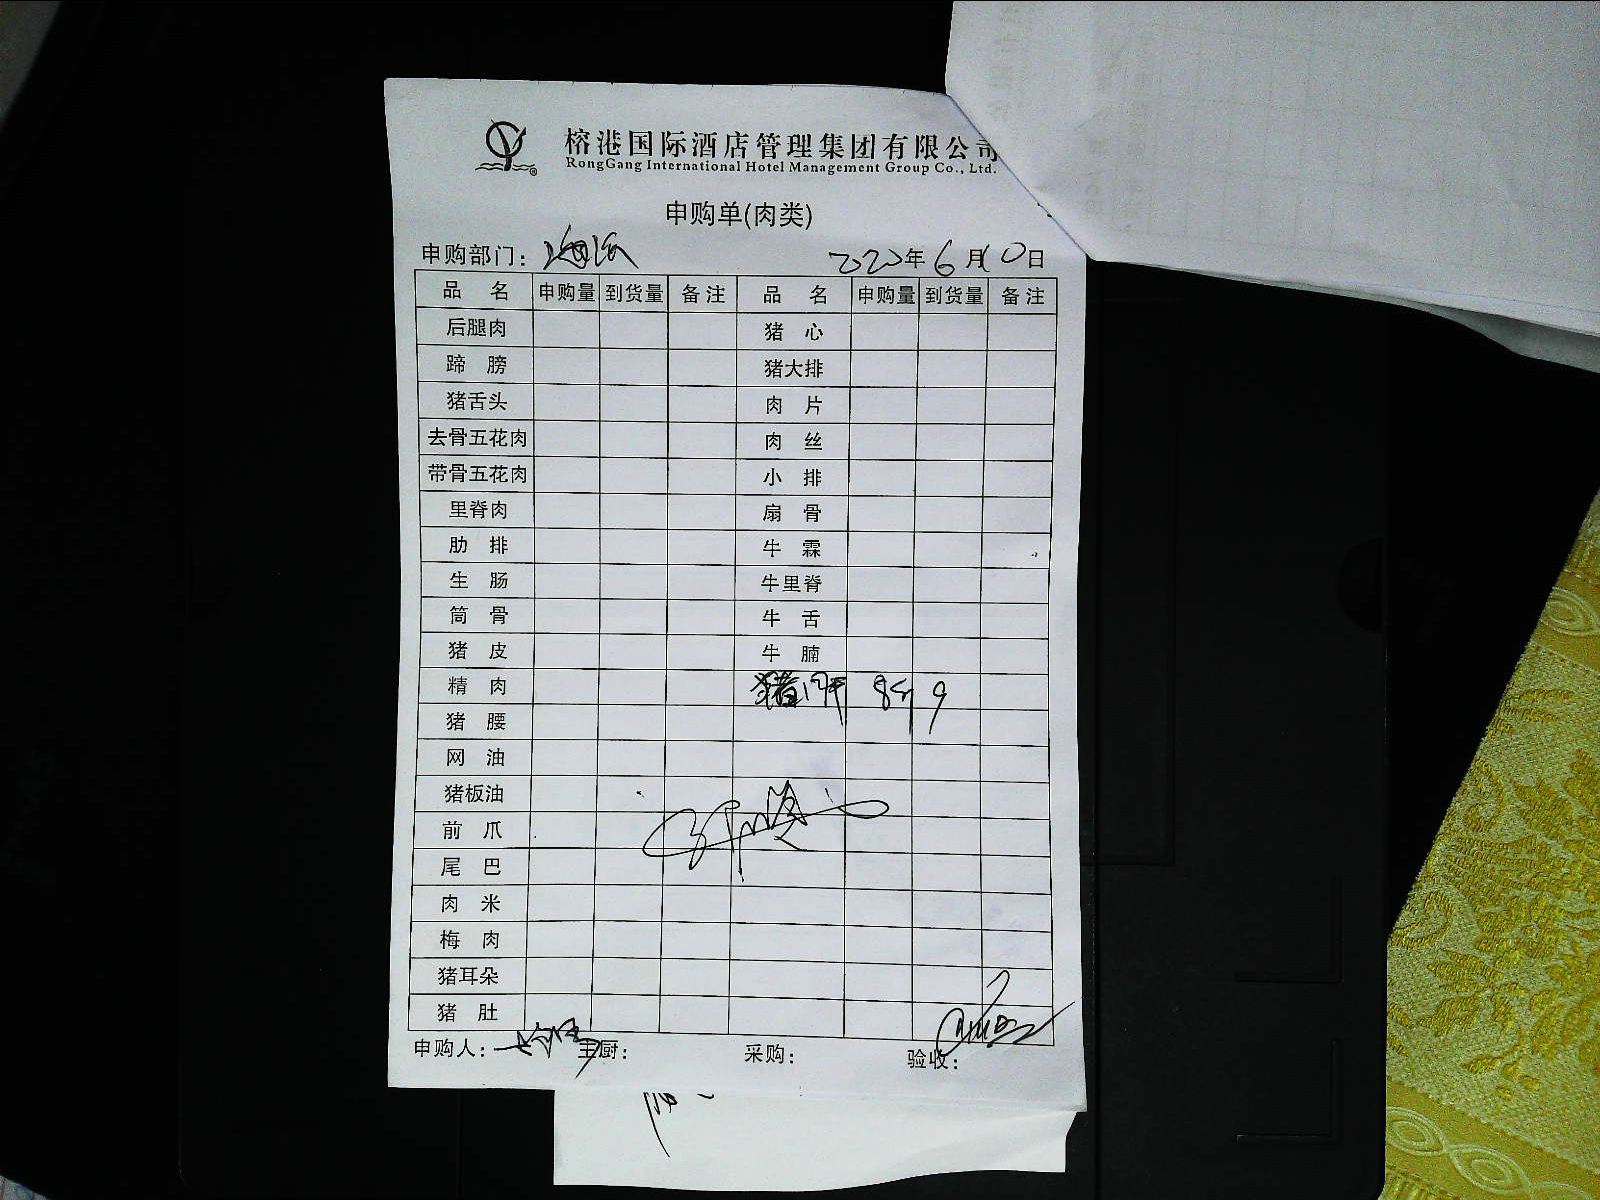 榕港国际酒店管理集团有限公司
RongGang International Hotel Management Group Co., Ltd.
申购单(肉类)
申购部门： 2020年6月10日
品 名 申购量 到货量 备注 品 名 申购量 到货量 备注
后腿肉 猪 心
蹄 膀 猪大排
猪舌头 肉 片
去骨五花肉 肉 丝
带骨五花肉 小 排
里脊肉 扇 骨
肋 排 牛 霖
生 肠 牛里脊
筒 骨 牛 舌
猪 皮 牛 腩
精 肉 猪肝 8斤 9
猪 腰
网 油
猪板油
前 爪
尾 巴
肉 米
梅 肉
猪耳朵
猪 肚
申购人： 主厨： 采购： 验收：